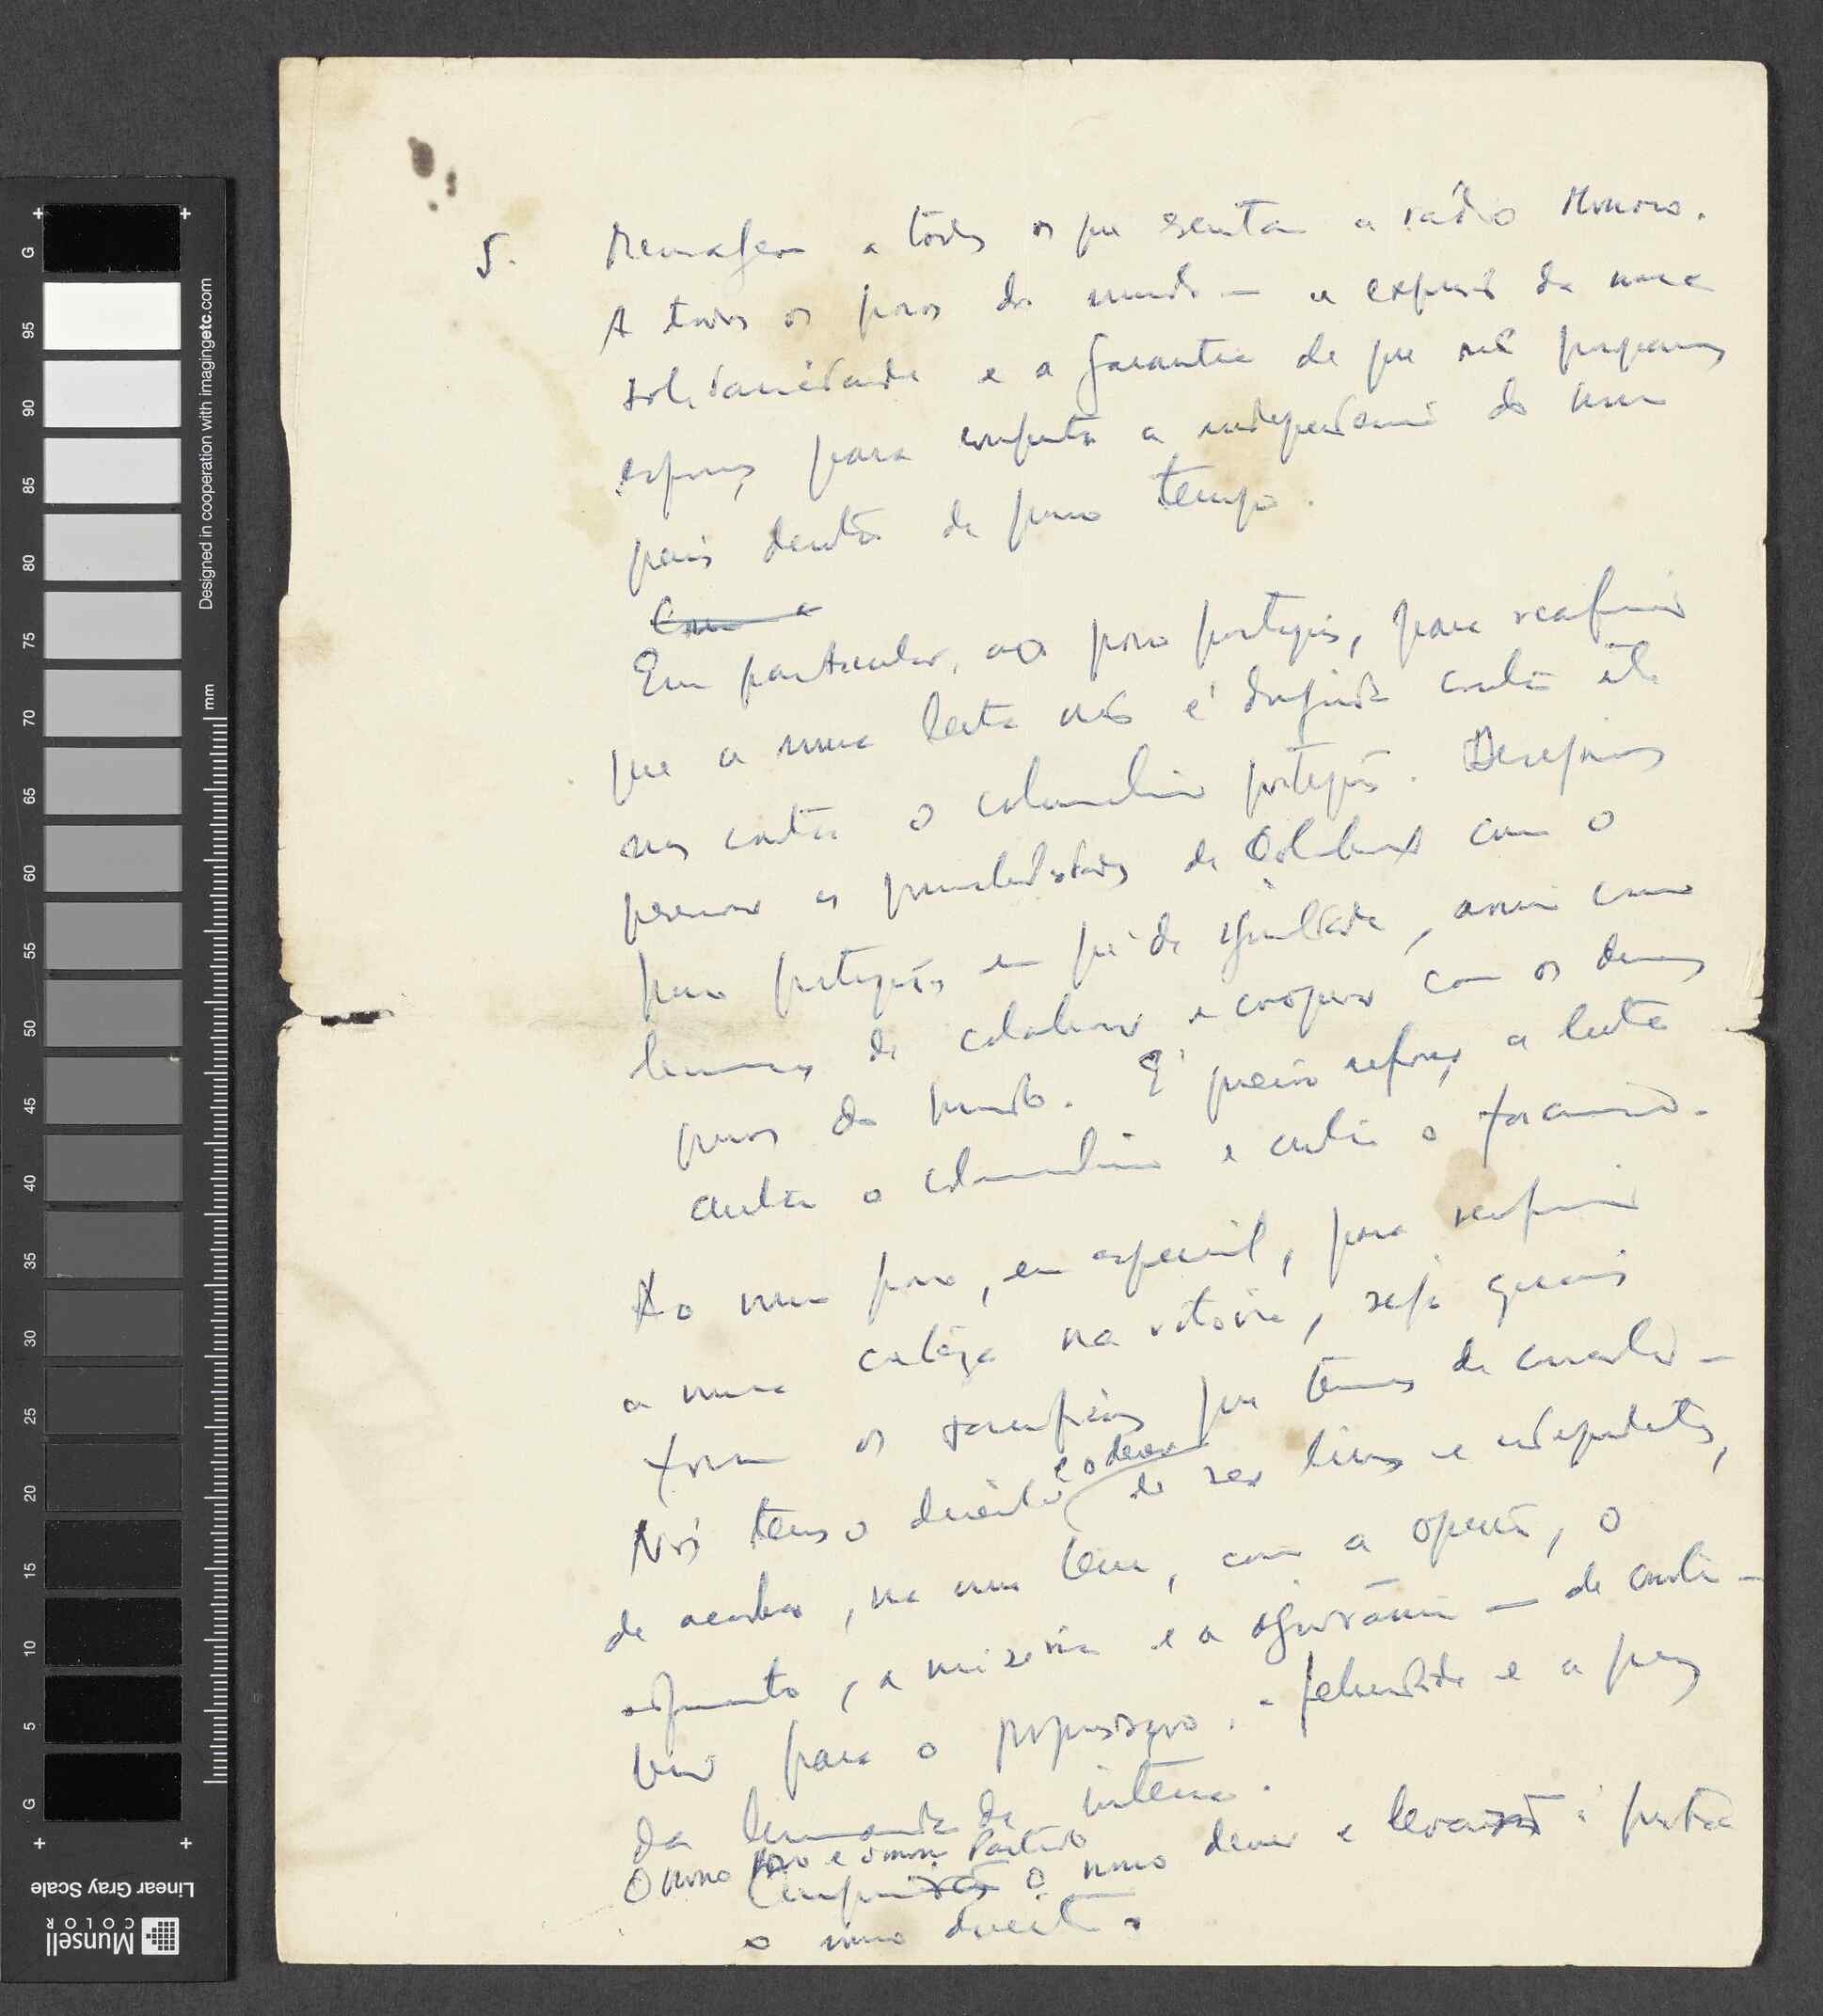 5. Mensagem a todos os que escutam a rádio Moscovo.
A todos os povos do mundo — a expressão da nossa
solidariedade e a garantia de que não pouparemos
esforços para conquistar a independência do nosso
país dentro de pouco tempo.
Em particular, ao povo português, para reafirmar
que a nossa luta não é dirigida contra ele
mas contra o colonialismo português. Desejamos
preservar as possibilidades de colaborar com o
povo português em pé de igualdade, assim como
temos de colaborar e cooperar com os demais
povos do mundo. É preciso reforçar a luta
contra o colonialismo e contra o fascismo.
Ao nosso povo, em especial, para reafirmar
a nossa certeza na vitória, seja quais
forem os sacrifícios que temos de consentir —
Nós temos o direito e o dever de ser livres e independentes,
de acabar, na nossa terra, com a opressão, o
sofrimento, a miséria e a ignorância — de contri-
buir para o progresso, a felicidade e a paz
da humanidade inteira.
O nosso Povo e o nosso Partido
o nosso dever e à prática
o nosso direito.
Designed in cooperation with imagingetc.com
mm
G 95 90 85 80 75 70 65 60 55 50 45 40 35 30 25 20 15 10 5 G
Linear Gray Scale
Munsell
COLOR